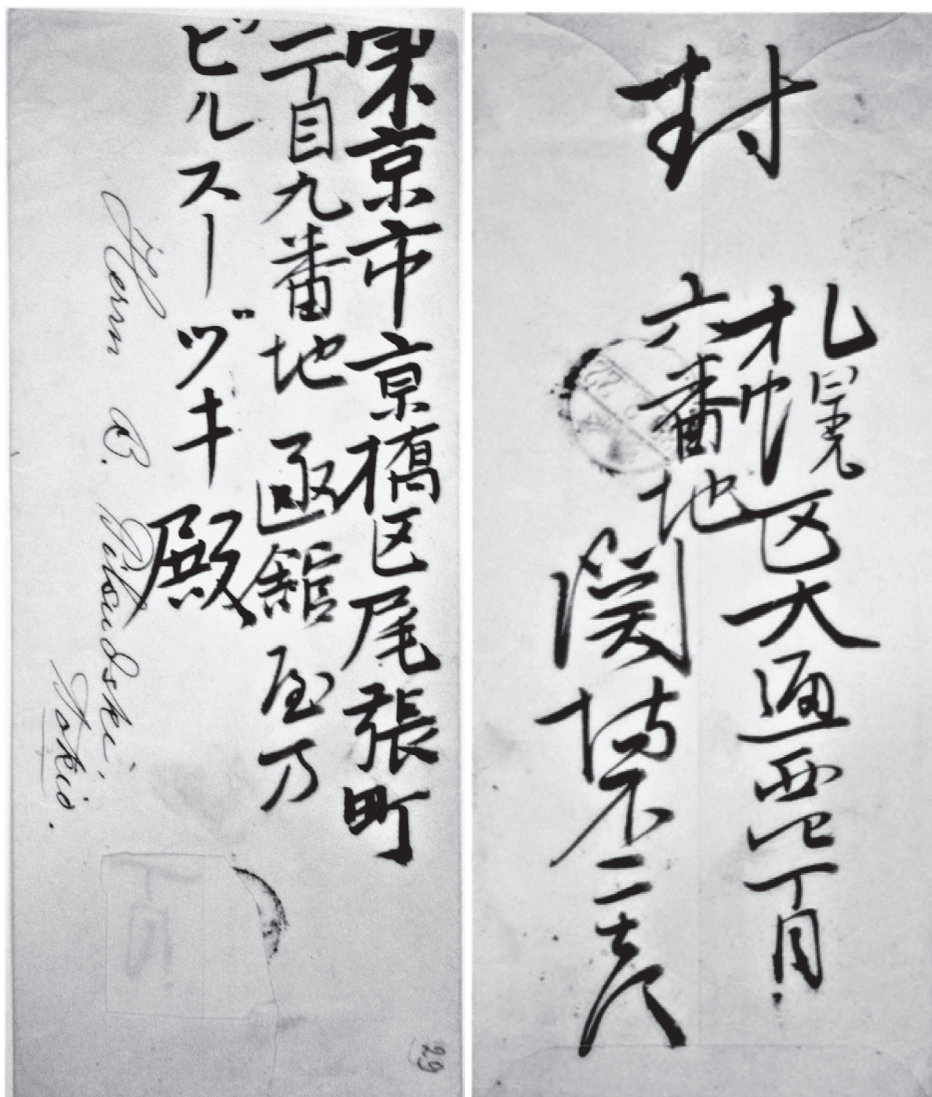 東京市京橋区尾張町
二丁目九番地 函館屋乃
ビルスーヅキ 殿
Herrn B. Pilsudski,
Tokio.
29
封
札幌区大通西四丁目
六番地
関場不二彦